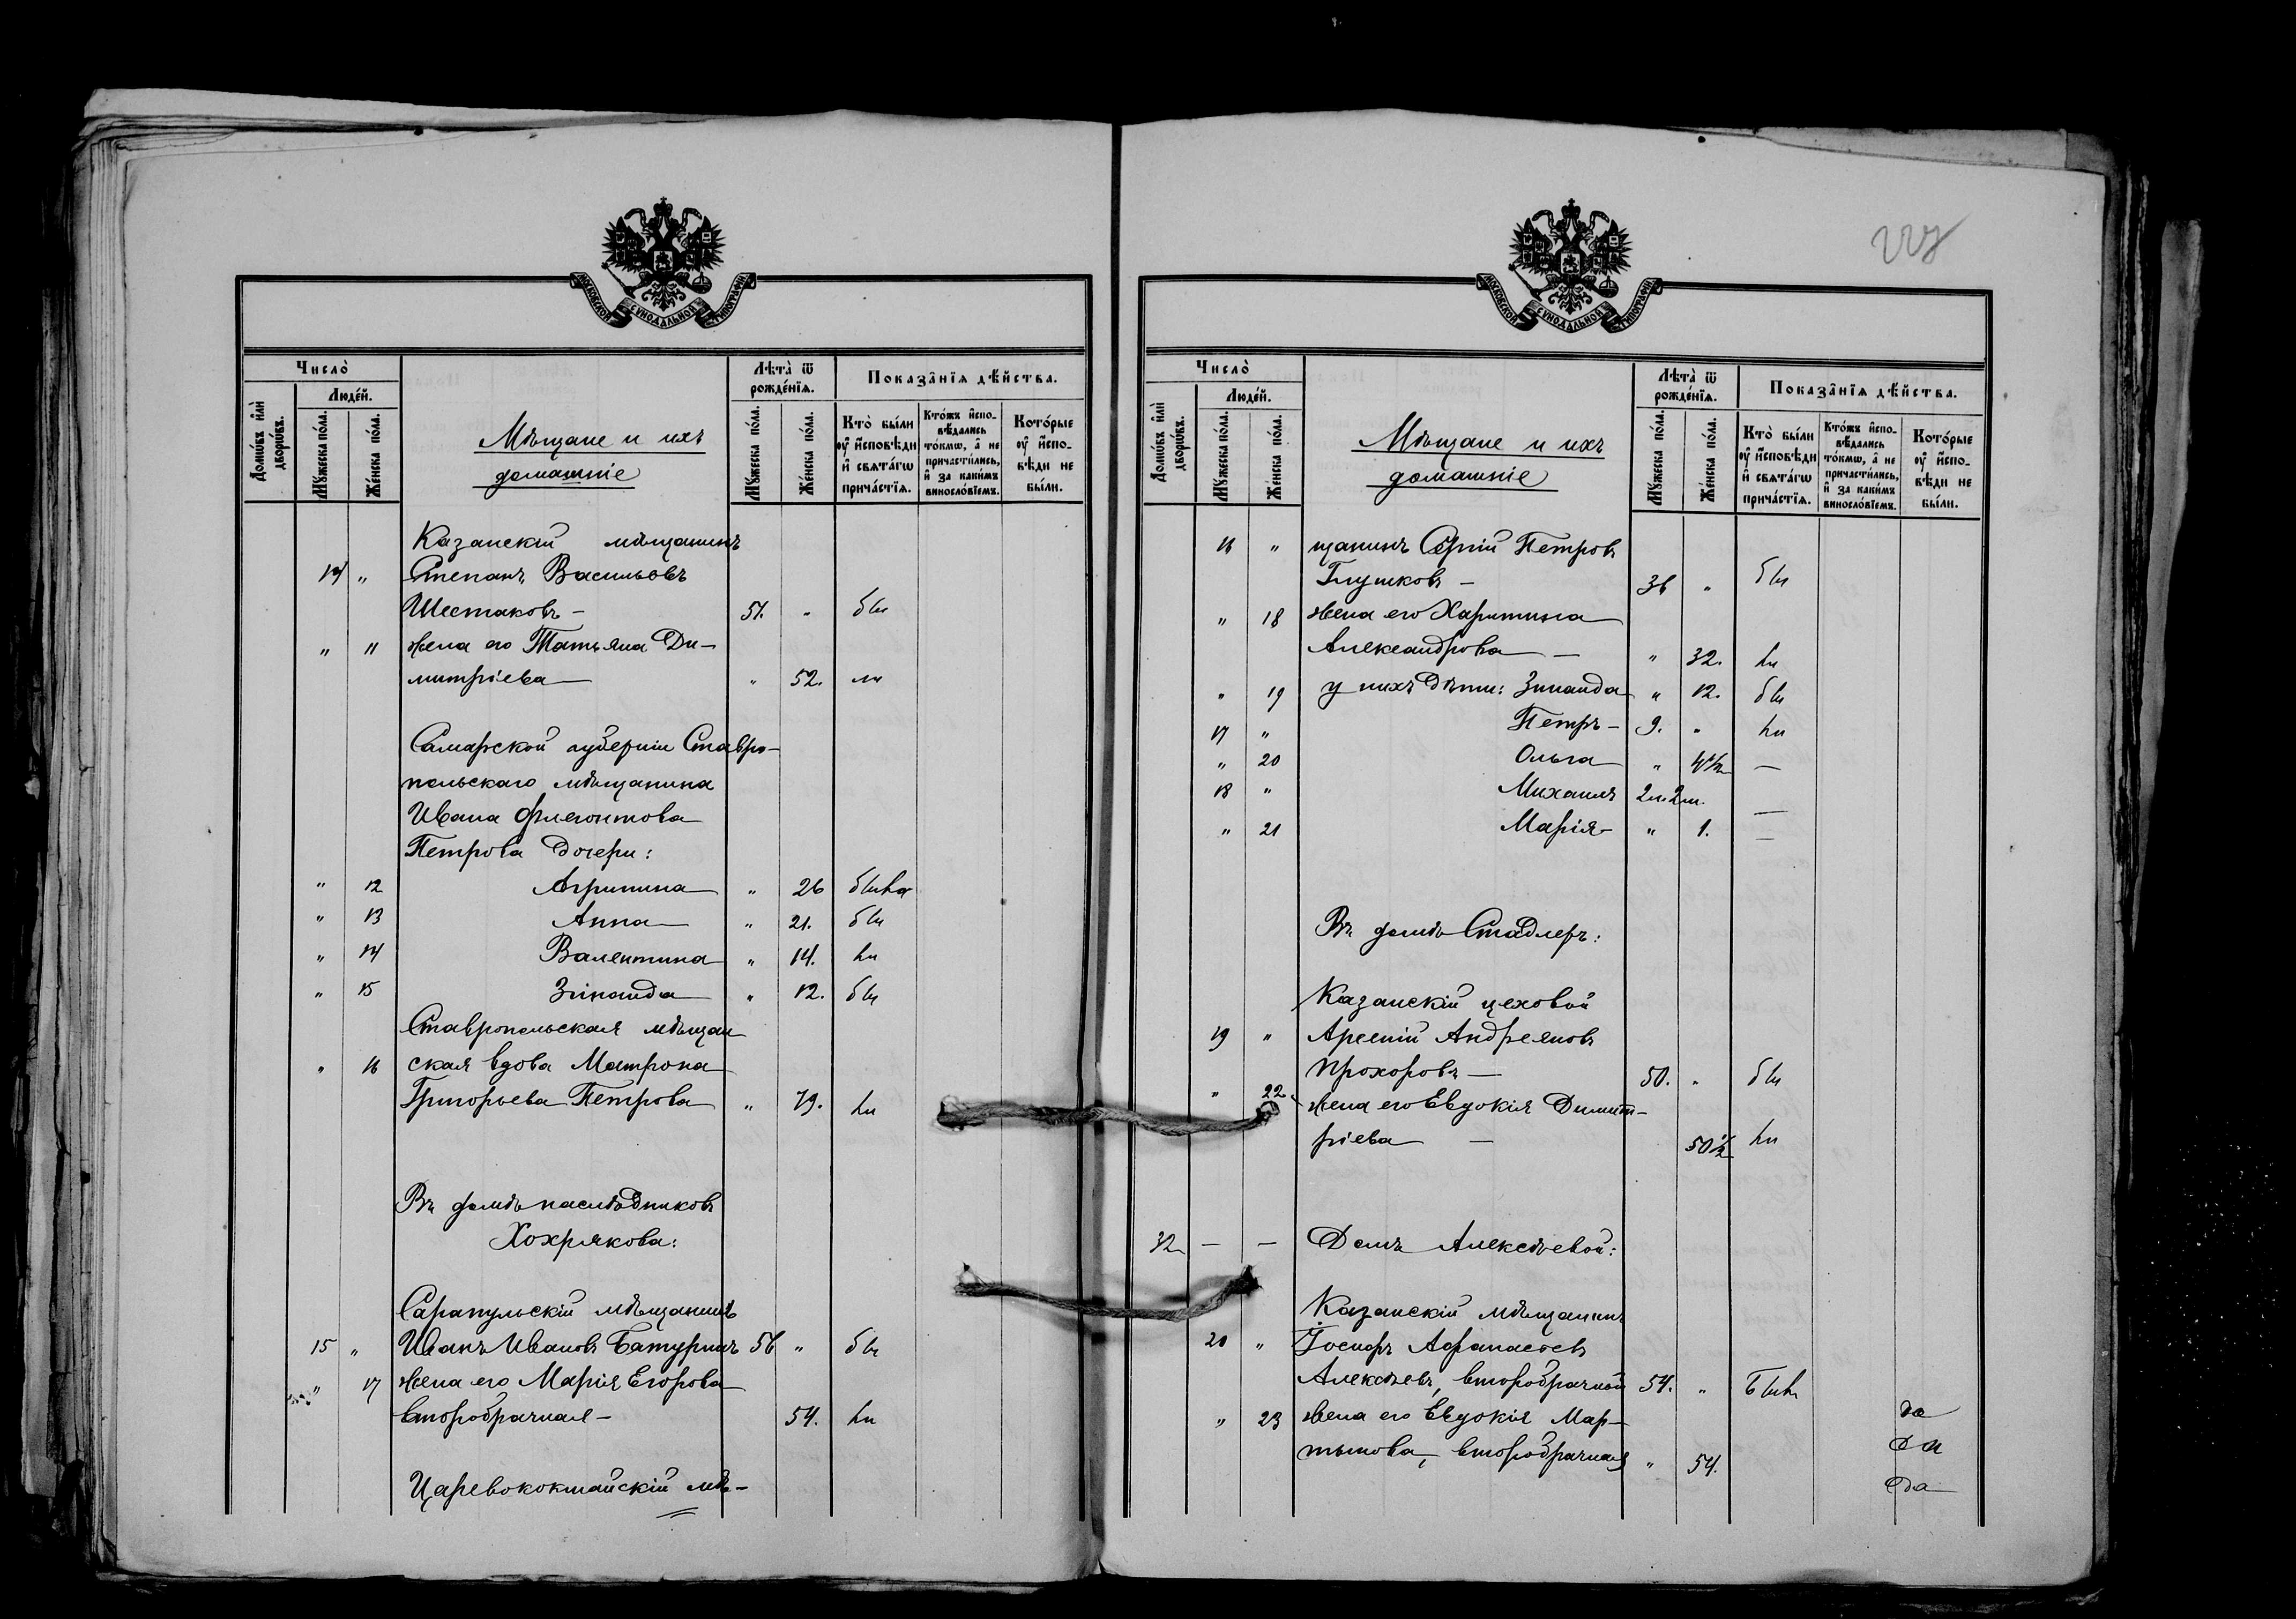 МОСКОВСКОЙ СѴНОДАЛЬНОЙ ТИПОГРАФІИ
Число̀
Люде́й.
Домѡ́въ и҆лѝ дворѡ́въ.
Мꙋ́жеска по́ла.
Же́нска по́ла.
Мѣщане и ихъ
домашніе
Лѣта̀ ѿ рожде́нїѧ.
Мꙋ́жеска по́ла.
Же́нска по́ла.
Показа̑нїѧ дѣ́йства.
Кто̀ бы́ли ᲂу҆ и҆сповѣди и҆ свѧта́гѡ прича́стїѧ.
Кто́жъ и҆спо-вѣдались то́кмѡ, а҆ не причасти́лись, и҆ за каки́мъ винословїемъ.
Кото́рые ᲂу҆ и҆спо-вѣди не бы́ли.
Казанскій мѣщанинъ
14 " Степанъ Васильевъ
Шестаковъ – 51. " был
" 11 жена его Татьяна Ди-
митріева — " 52. ли
Самарской губерніи Ставро-
польскаго мѣщанина
Ивана Флегонтова
Петрова дочери:
" 12 Агрипина " 26 была
" 13 Анна " 21. бы
" 14 Валентина " 14. ли
" 15 Зинаида " 12. бы
Ставропольская мѣщан
" 16 ская вдова Матрона
Григорьева Петрова " 79. ли
Въ домѣ наслѣдниковъ
Хохрякова:
Сарапульскій мѣщанинъ
15 " Иванъ Ивановъ Батуринъ 56 " бы
" 17 жена его Марія Егорова
второбрачная – 54. ли
Царевококшайскій мѣ-
227
МОСКОВСКОЙ СѴНОДАЛЬНОЙ ТИПОГРАФІИ
Число̀
Люде́й.
Домѡ́въ и҆лѝ дворѡ́въ.
Мꙋ́жеска по́ла.
Же́нска по́ла.
Мѣщане и ихъ
домашніе
Лѣта̀ ѿ рожде́нїѧ.
Мꙋ́жеска по́ла.
Же́нска по́ла.
Показа̑нїѧ дѣ́йства.
Кто̀ бы́ли ᲂу҆ и҆сповѣди и҆ свѧта́гѡ прича́стїѧ.
Кто́жъ и҆спо-вѣдались то́кмѡ, а҆ не причасти́лись, и҆ за каки́мъ винословїемъ.
Кото́рые ᲂу҆ и҆спо-вѣди не бы́ли.
16 " щанинъ Сергій Петровъ
Глушковъ – 36 " бы
" 18 жена его Харитина
Александрова — " 32. ли
" 19 у нихъ дѣти: Зинаида " 12. бы
17 " Петръ – 9. " ли
" 20 Ольга " 4½ —
18 " Михаилъ 2м. 2м. —
" 21 Марія – " 1. —
Въ домѣ Стадлеръ:
Казанскій цеховой
19 " Арсеній Андреяновъ
Прохоровъ — 50. " бы
" 22. жена его Евдокія Димит-
ріева — 50½ ли
32 — — Домъ Алексѣевой:
Казанскій мѣщанинъ
20 " Іосифъ Афанасьевъ
Алексѣевъ, второбрачный 54. " Былъ
" 23 жена его Евдокія Мар-
тынова, второбрачная " 54.
да
да
да